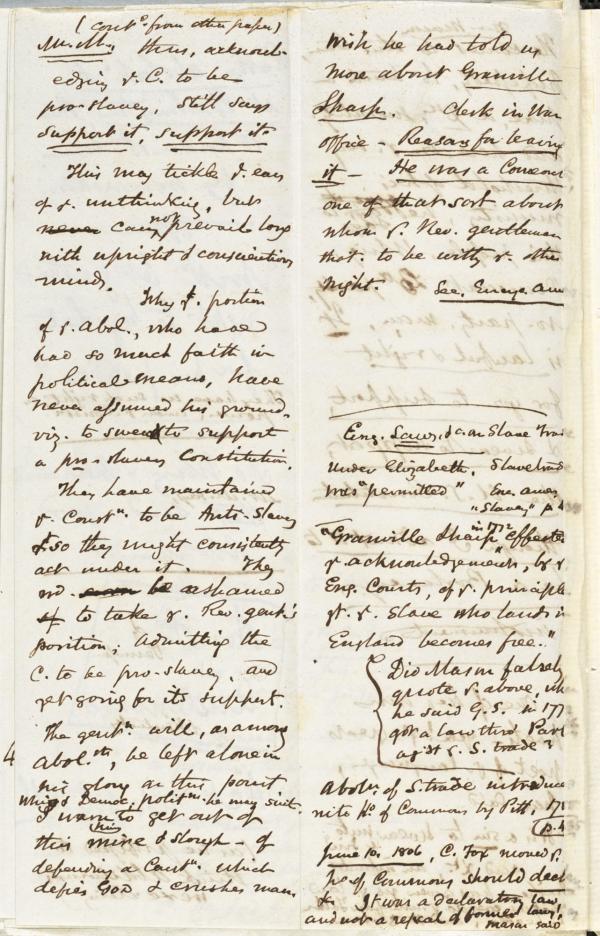 (cont'd from other paper)
Mr. M., thus, acknowl-
edging ye. C. to be
pro-slavery, still says
support it, support it
This may tickle ye. ears
of ye. unthinking, but
never can not prevail long
with upright & conscientious
minds.
Why yt. portion
of ye. Abol., who have
had so much faith in
political means, have
never assumed his ground,
viz. to swear to support
a pro-slavery Constitution.
They have maintained
ye. Constn. to be Anti-Slavery
& so they might consistently
act under it. They
wd. be ashamed
to take ye. Rev. gent's
position; admitting the
C. to be pro-slavery, and
yet going for its support.
The gentn. will, as among
Abolsts, be left alone in
his glory on this point
Whigs Democ. politns. he may suit.
4
I want him to get out of
this mire & slough - of
defending a Constn. which
defies God & crushes man.
wish he had told us
more about Granville
Sharp. Clerk in War
office - Reasons for leaving
it - He was a
one of that sort about
whom ye. Rev. gentleman
tho't. to be witty ye. other
night. See. Ency. Am
Eng. Laws, &c. on Slave Trad
under Elizabeth. Slave trad
was "permitted" Enc. Amer
"Slavery" p. 4
"Granville Sharp in 1772 effected
ye acknowledgement, by ye
Eng. Courts, of ye principle
yt. ye. Slave who lands in
England becomes free."
Did Mason falsely
quote ye. above, wh
he said G.S. in 177
got a law thro' Parl
ag'st ye. S. trade?
Aboln. of S. trade introduce
into Ho. of Commons by Pitt, 17
p. 4
June 10. 1806, C. Fox moved ye.
Ho. of Commons should decl
&. It was a declaratory law,
and not a repeal of former laws!
Mason said